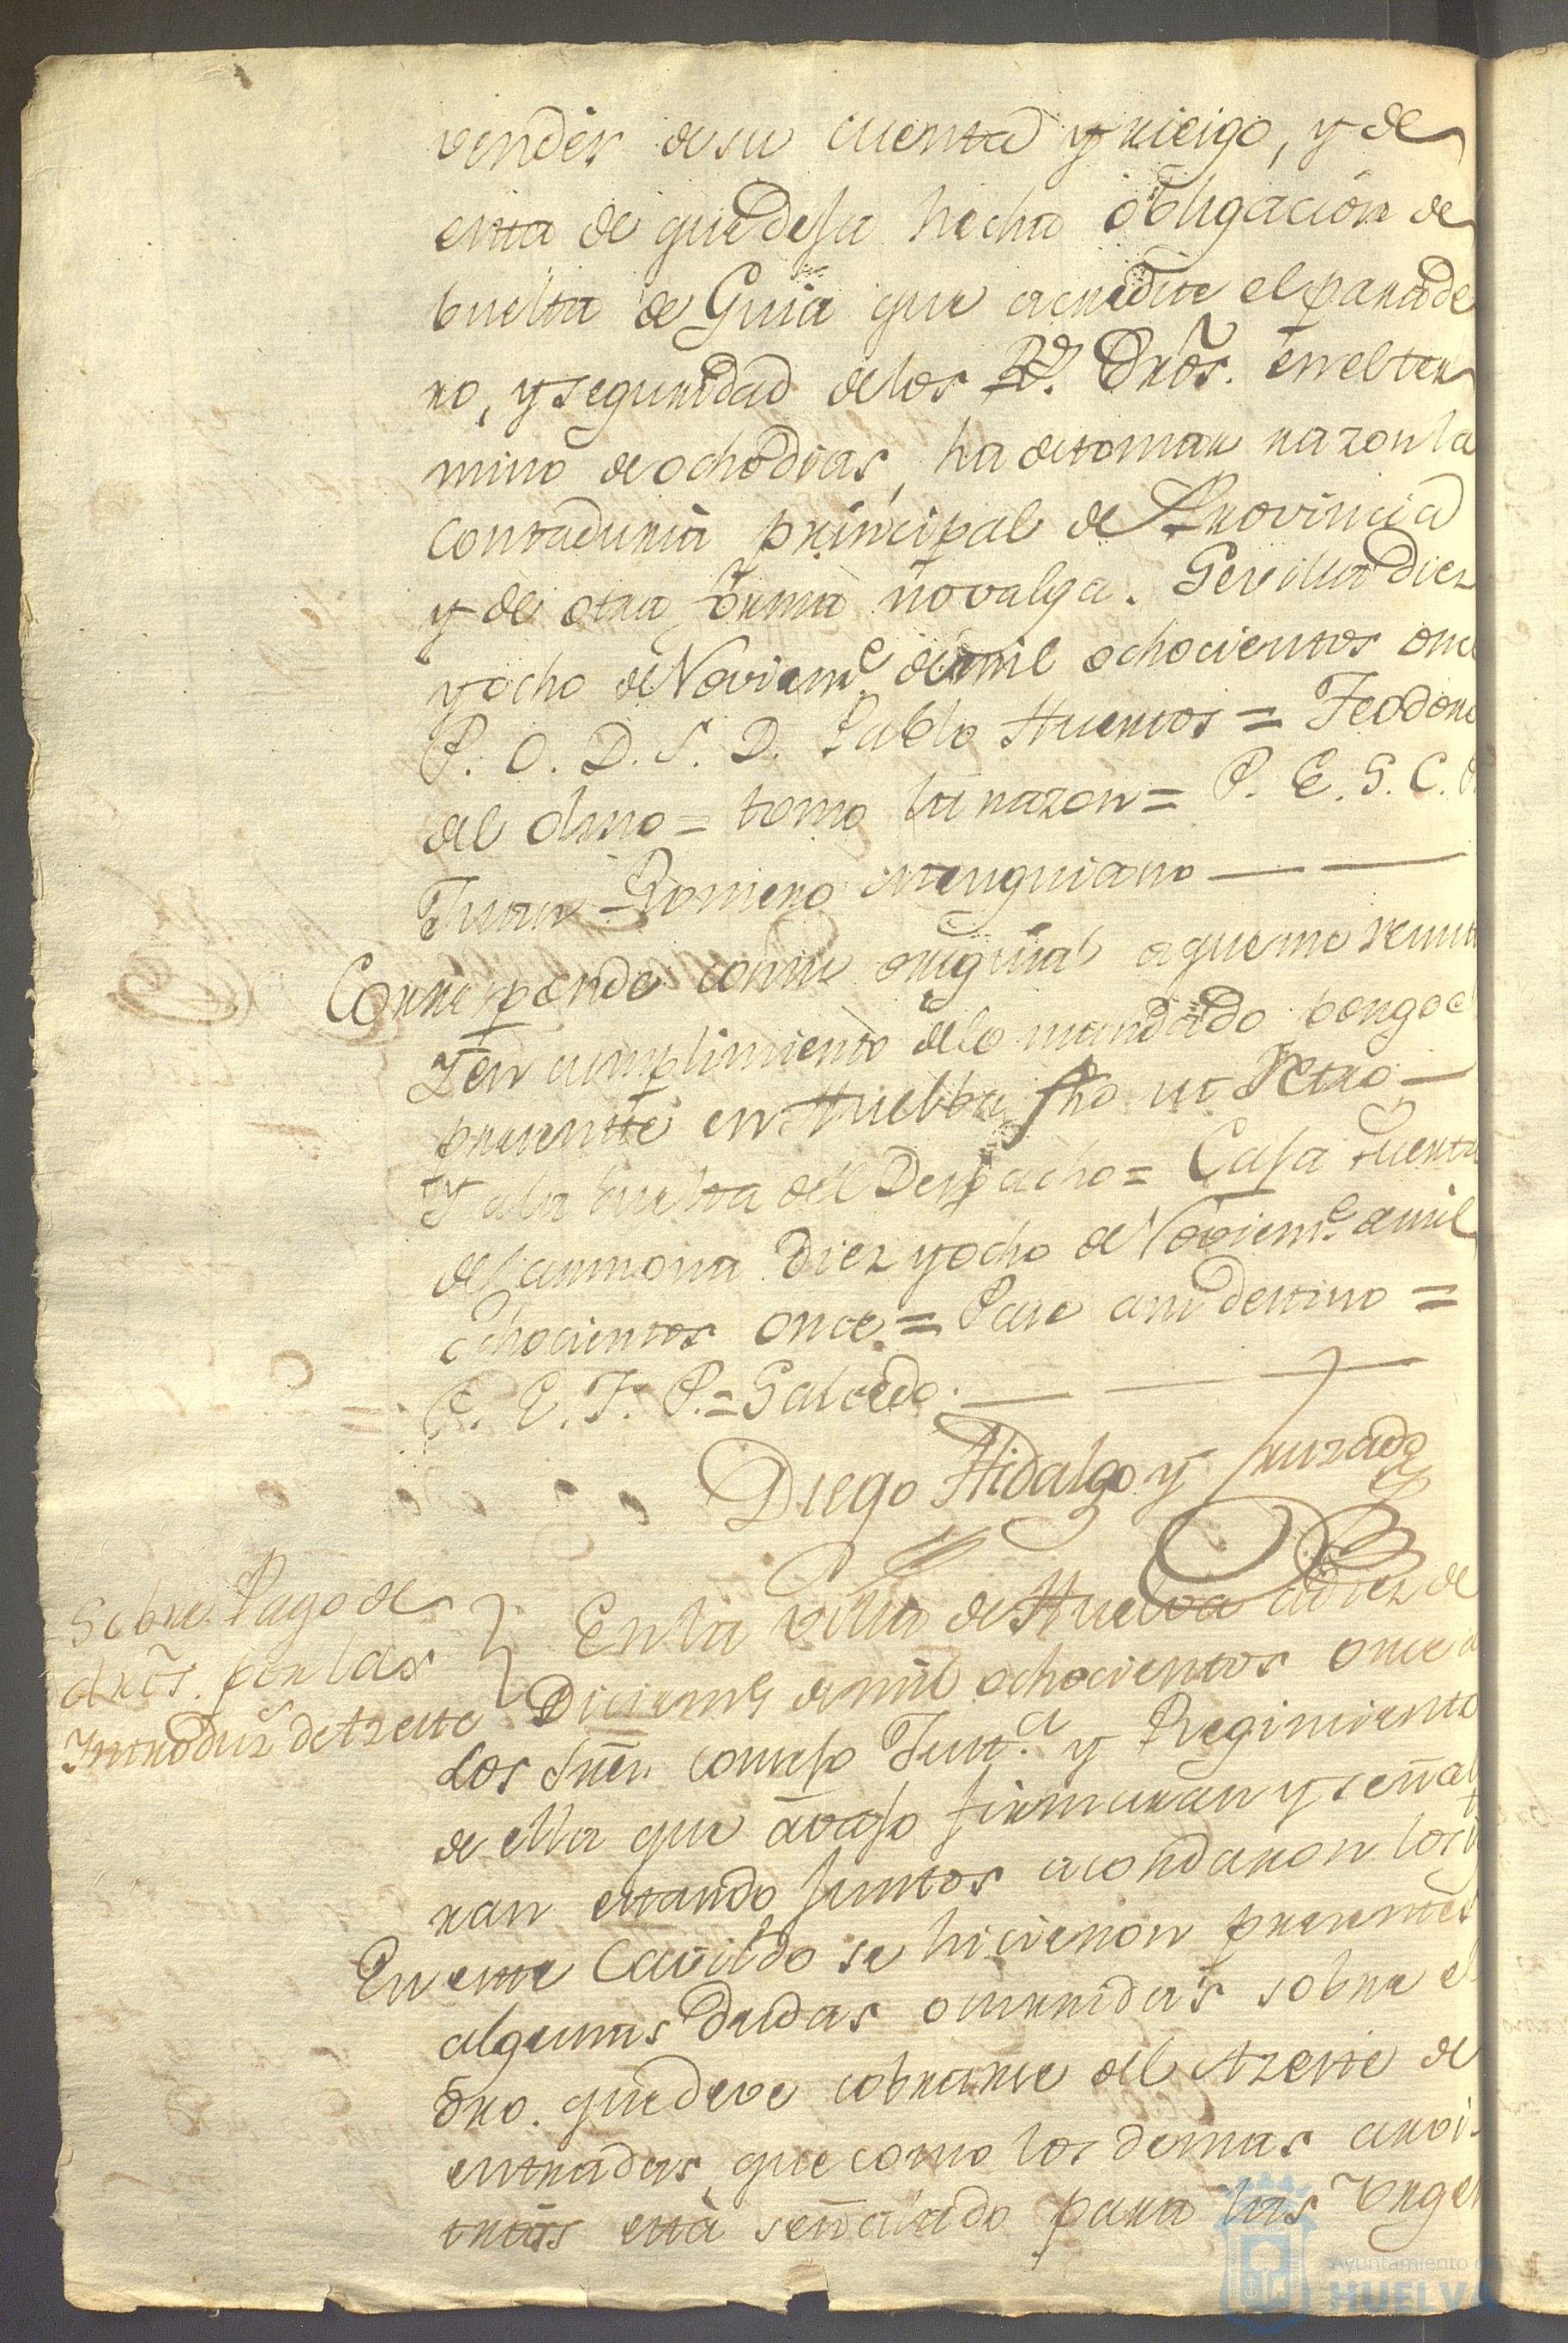 vender de su cuenta y riesgo, y de
esta de quedesa hecha obligacion de
buelta de Guia que acredite el parade
ro, y seguridad de los R.^s Dros. en el ter
mino de ocho dias, ha de tomar razon la
Contaduria principal de Provincia
y de otra forma no valga. Sevilla diez
y ocho de Noviem.^e de mil ochocientos once
P. O. D. S. D. Pablo Huertos = Teodoro
del Olmo = tomo la razon = P. E. S. C.
Juan Romero Menguiano
Corresponde con su original a que me remito
Y en cumplimiento de lo mandado pongo el
presente en Huelba fho ut Retro
Y a la buelta del Despacho = Casa Puerta
de Carmona diez y ocho de Noviem.^e de mil
ochocientos once = Pase a su destino =
P. E. F. P. = Salcedo.
Diego Hidalgo y Jurado
Sobre Pago de
dros. por las
Introduz.^s de Azeite
En la Villa de Huelva a diez de
Diciem.^e de mil ochocientos once
Los Sres. Consejo Just.^a y Regimiento
de ella que avajo firmaran y señala
ran estando juntos acordaron los
En este Cavildo se hicieron presentes
algunas dudas ocurridas sobre el
dro. que deve cobrarse del Azeite de
entradas, que como los demas arvi-
trios está señalado para las Urgen
Ayuntamiento de
HUELVA